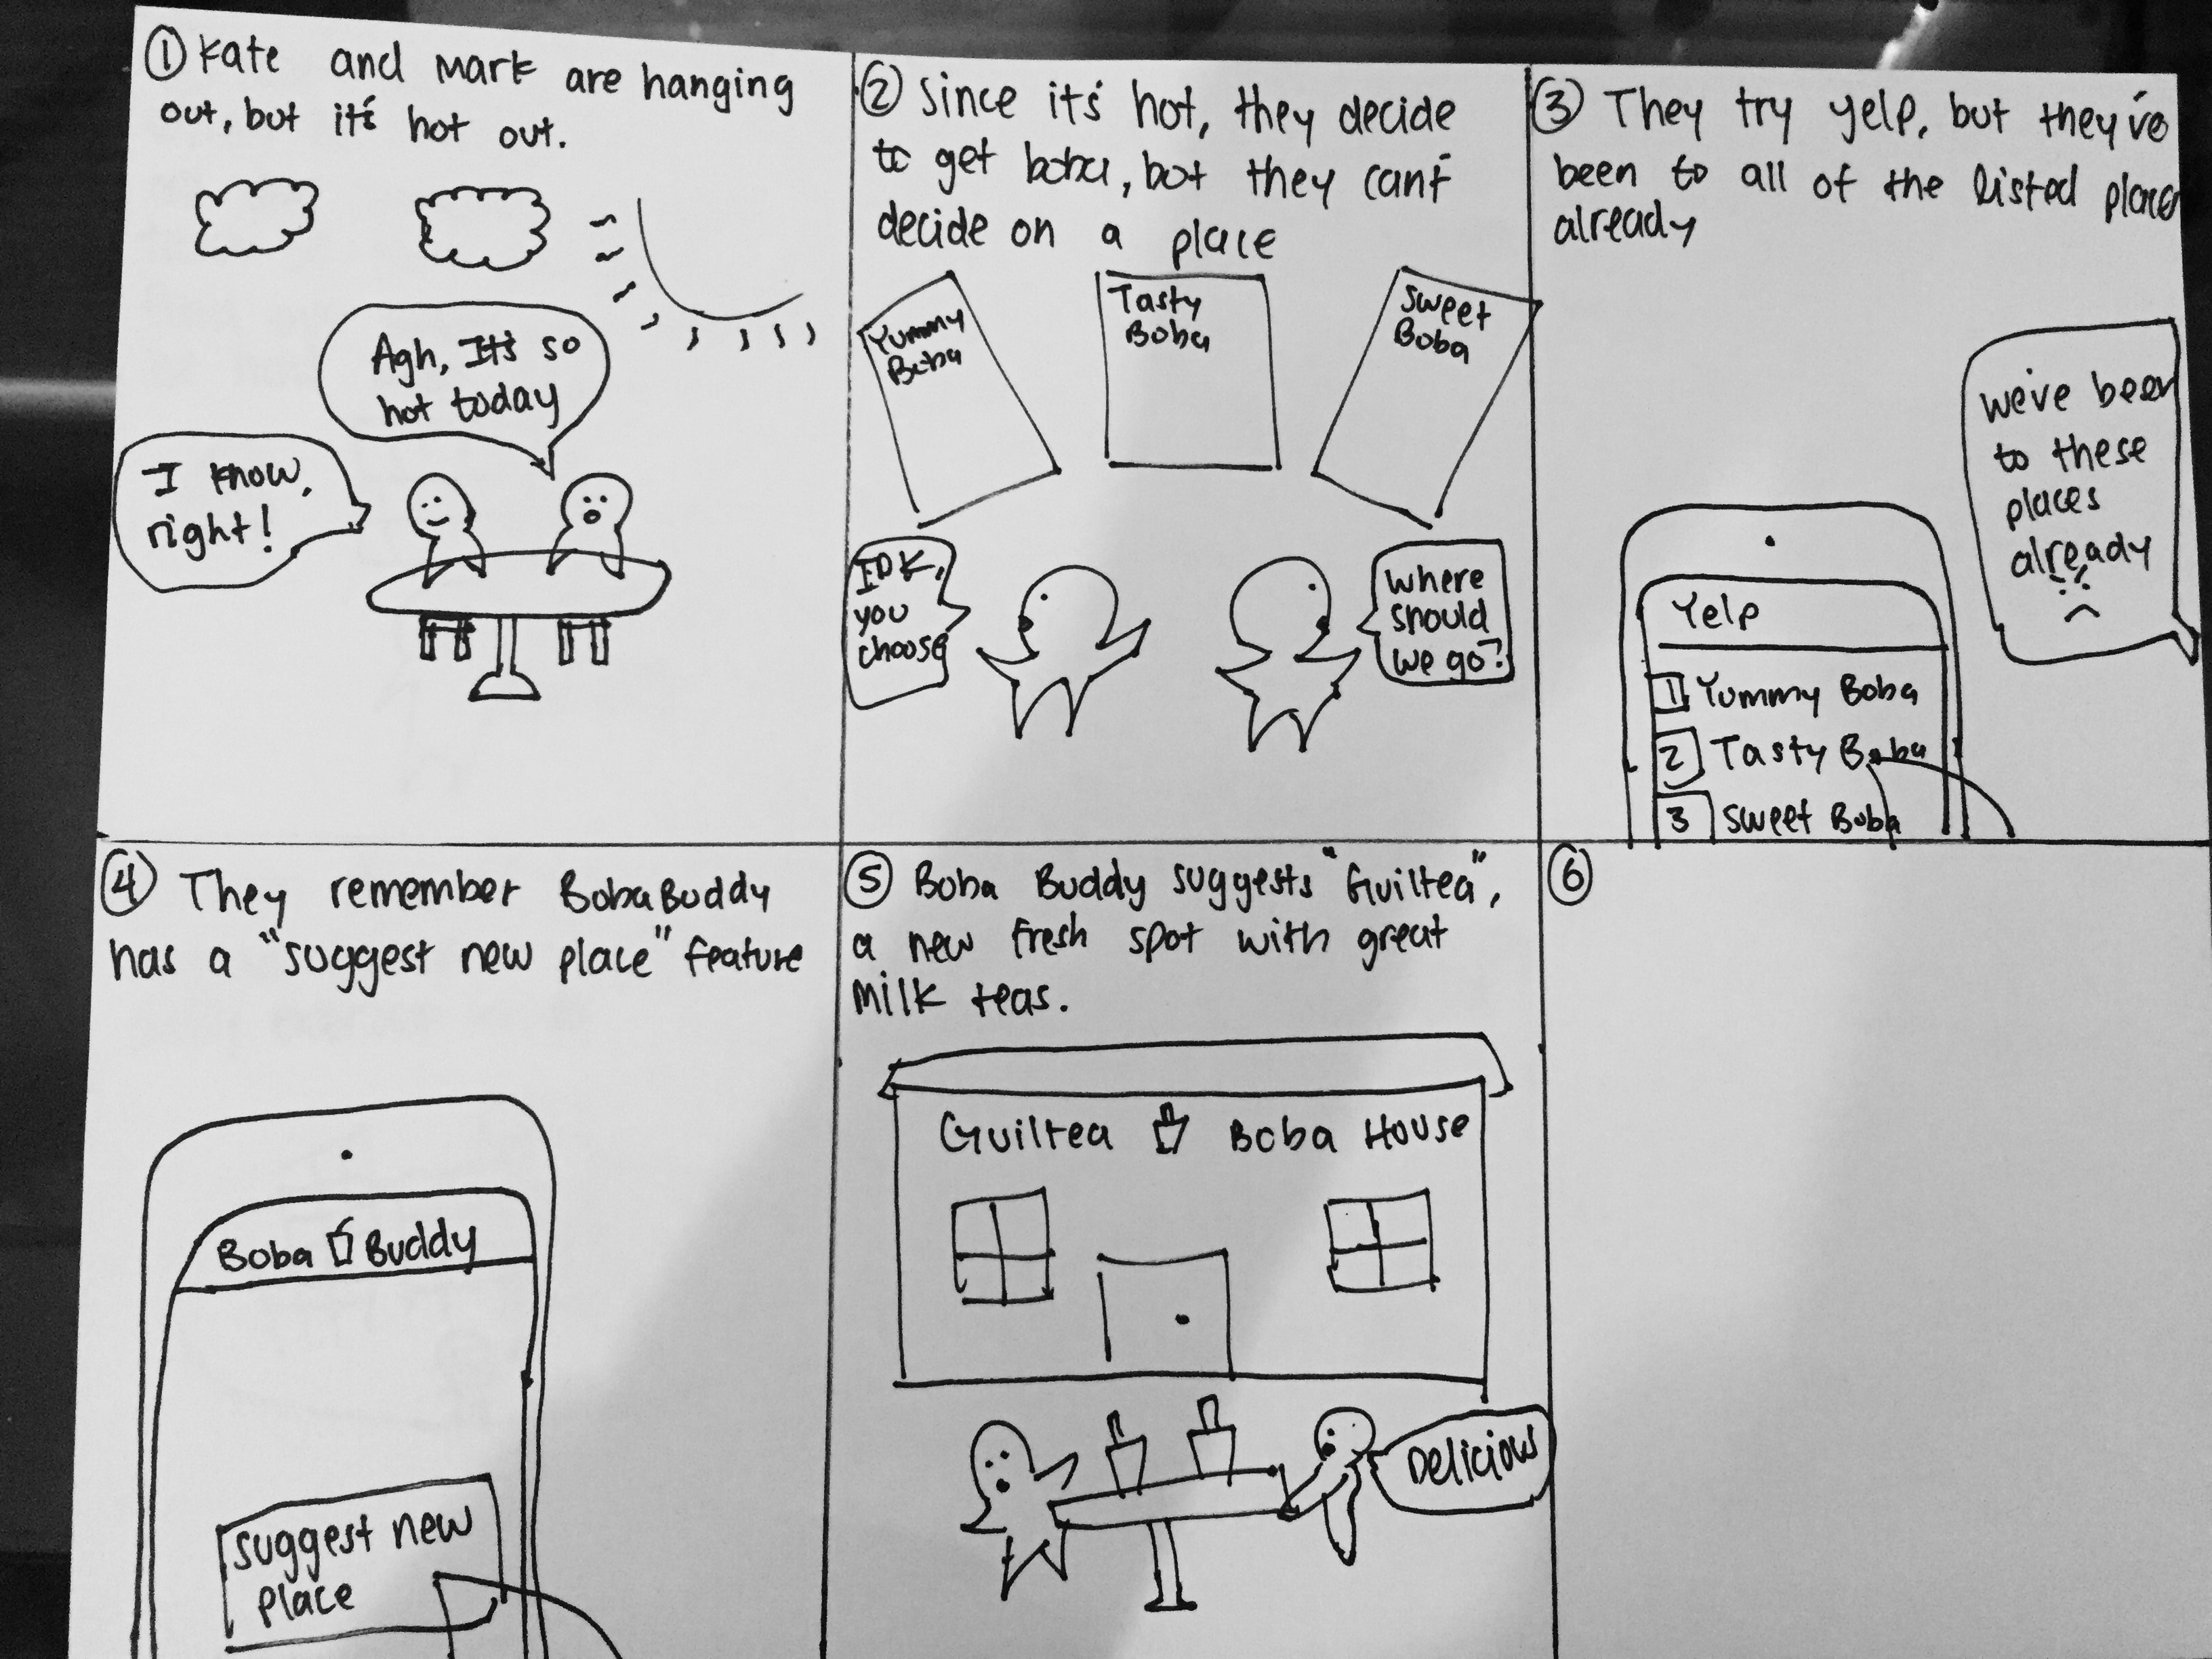 ① Kate and Mark are hanging
out, but it's hot out.
Agh, It's so
hot today
I know,
right!
② Since it's hot, they decide
to get boba, but they can't
decide on a place
Yummy
Boba
Tasty
Boba
Sweet
Boba
IDK,
you
choose
Where
should
we go?
③ They try yelp, but they've
been to all of the listed places
already
We've been
to these
places
already
Yelp
1 Yummy Boba
2 Tasty Boba
3 Sweet Boba
④ They remember BobaBuddy
has a "suggest new place" feature
Boba Buddy
suggest new
place
⑤ Boba Buddy suggests "Guiltea",
a new fresh spot with great
milk teas.
Guiltea Boba House
Delicious
⑥